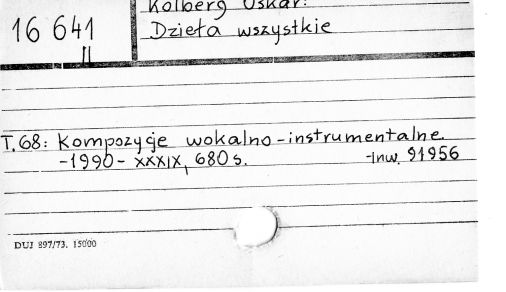 Kolberg Oskar.
16 641
II
Dzieła wszystkie
T. 68: Kompozycje wokalno-instrumentalne.
-1990- XXXIX, 680 s. -inw. 91956
DUJ 897/73. 15000